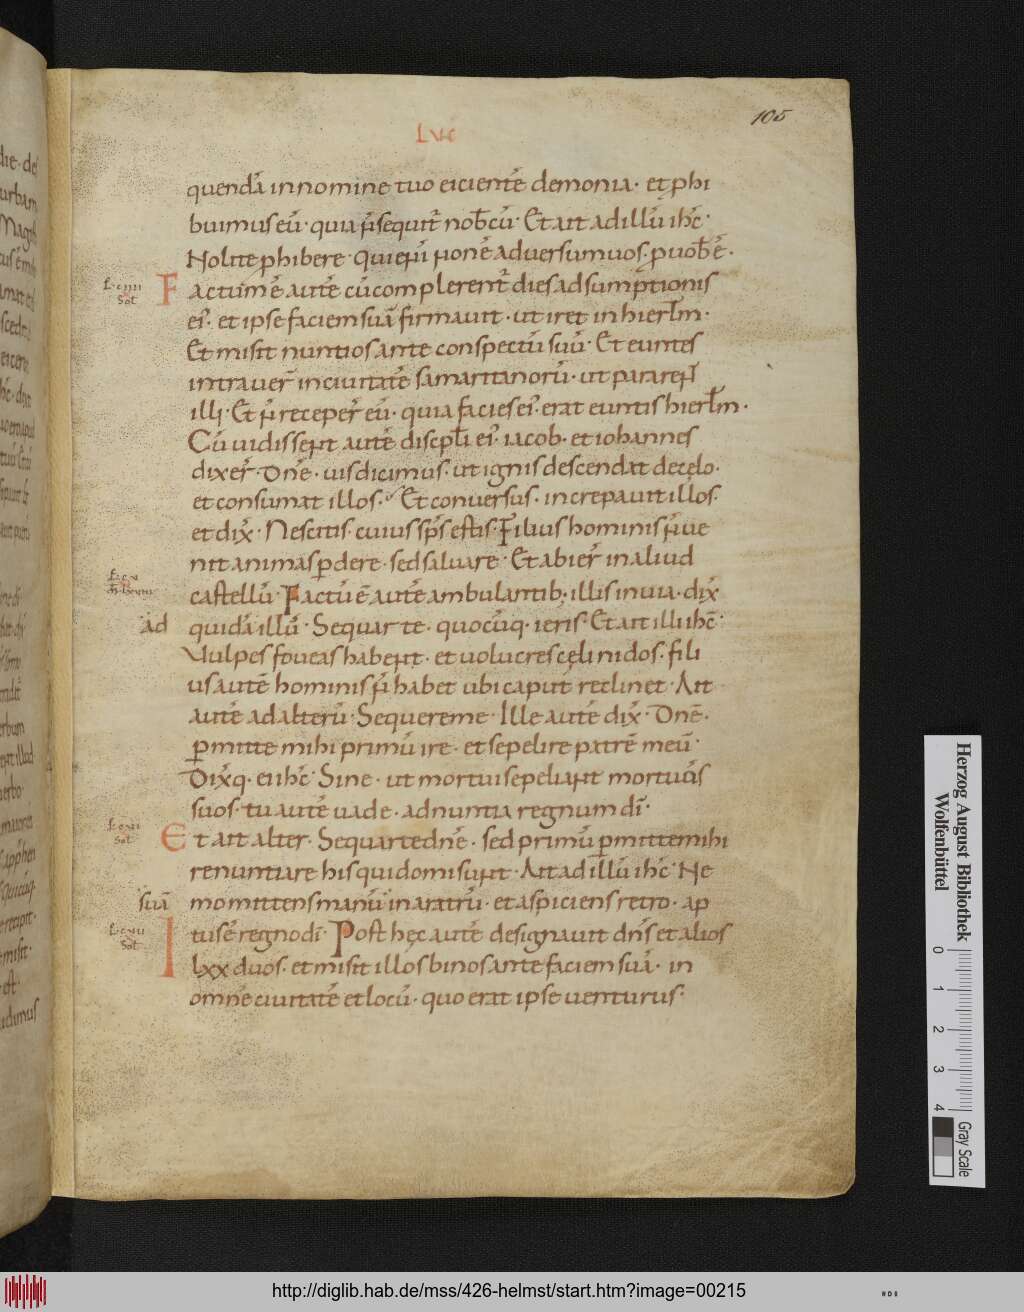 105
LUC
quendā in nomine tuo eicientē demonia· et phi
buimus eū· quia n̄ sequit̄ nob̄cū· Et ait ad illū ihc̄·
Nolite phibere· qui enī non ē adversum uos· p uob̄ ē·
Factum ē autē cū complerent̄ dies adsumptionis
ei᾽· et ipse faciem suā firmauit· ut iret in hierl̄m·
Et misit nuntios ante conspectū suū· Et euntes
intrauer̄ in ciuitatē samaritanorū· ut pararent
illi· Et n̄ receper̄ eū· quia facies ei᾽· erat euntis hierl̄m·
Cū uidissent autē discpl̄i ei᾽· iacob· et iohannes
dixer̄· Dnē· uis dicimus· ut ignis descendat de cęlo·
et consumat illos· Et conuersus· increpauit illos·
et dix̄· Nescitis· cuius sp̄s estis· Filius hominis n̄ ue
nit animas pdere· sed saluare· Et abier̄ in aliud
castellū· Factū ē autē ambulantib; illis in uia· dix̄
ad quidā illū· Sequar te· quocūq· ieris· Et ait illi ihc̄·
Vulpes foueas habent· et uolucres cęli nidos· fili
us autē hominis n̄ habet ubi caput reclinet· Ait
autē ad alterū· Sequere me· Ille autē dix̄· Dnē·
pmitte mihi primū ire· et sepelire patrē meū·
Dix̄q· ei ihc̄· Sine· ut mortui sepeliant mortuos
suos· tu autē uade· adnuntia regnum dī·
Et ait alter· Sequar te dnē· sed primū pmitte mihi
renuntiare his qui domi sunt· Ait ad illū ihc̄· Ne
mo mittens manū suā in aratrū· et aspiciens retro· ap
tus ē regno dī· Post hęc autē designauit dn̄s et alios
lxx duos· et misit illos binos ante faciem suā· in
omnē ciuitatē et locū· quo erat ipse uenturus·
Herzog August Bibliothek
Wolfenbüttel
0 1 2 3 4
Gray Scale
http://diglib.hab.de/mss/426-helmst/start.htm?image=00215